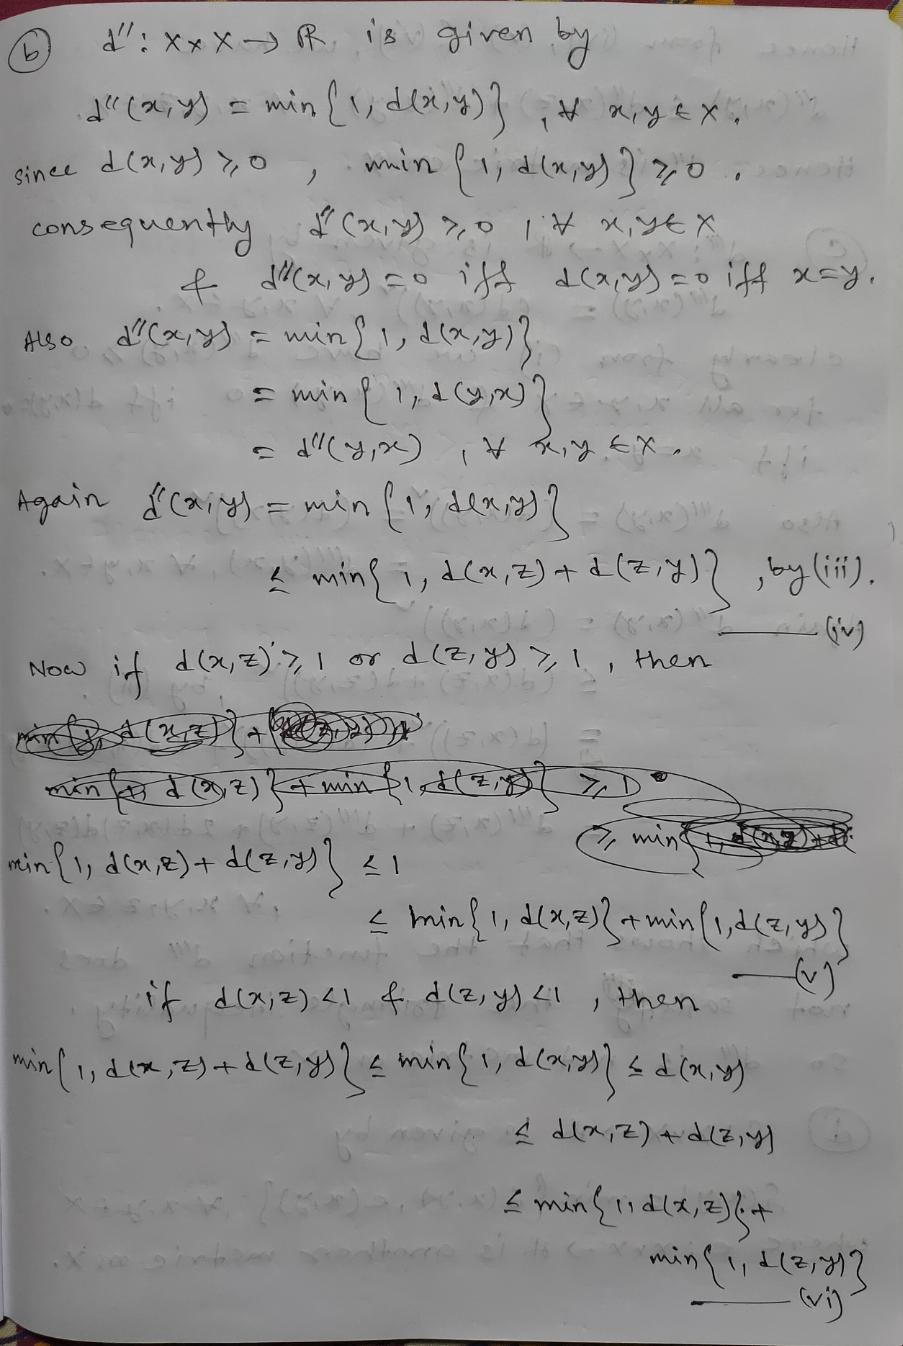 (b) d'' : X x X → R is given by
d''(x,y) = min{1, d(x,y)}, ∀ x,y ∈ X.
since d(x,y) ≥ 0, min{1, d(x,y)} ≥ 0.
consequently d''(x,y) ≥ 0, ∀ x,y ∈ X
& d''(x,y) = 0 iff d(x,y) = 0 iff x=y.
Also d''(x,y) = min{1, d(x,y)}
= min{1, d(y,x)}
= d''(y,x), ∀ x,y ∈ X.
Again d''(x,y) = min{1, d(x,y)}
≤ min{1, d(x,z) + d(z,y)}, by (iii).
—— (iv)
Now if d(x,z) ≥ 1 or d(z,y) ≥ 1, then
min{1, d(x,z) + d(z,y)} ≤ 1
≤ min{1, d(x,z)} + min{1, d(z,y)}
—— (v)
if d(x,z) < 1 & d(z,y) < 1, then
min{1, d(x,z) + d(z,y)} ≤ min{1, d(x,y)} ≤ d(x,y)
≤ d(x,z) + d(z,y)
≤ min{1, d(x,z)} +
min{1, d(z,y)}
—— (vi)